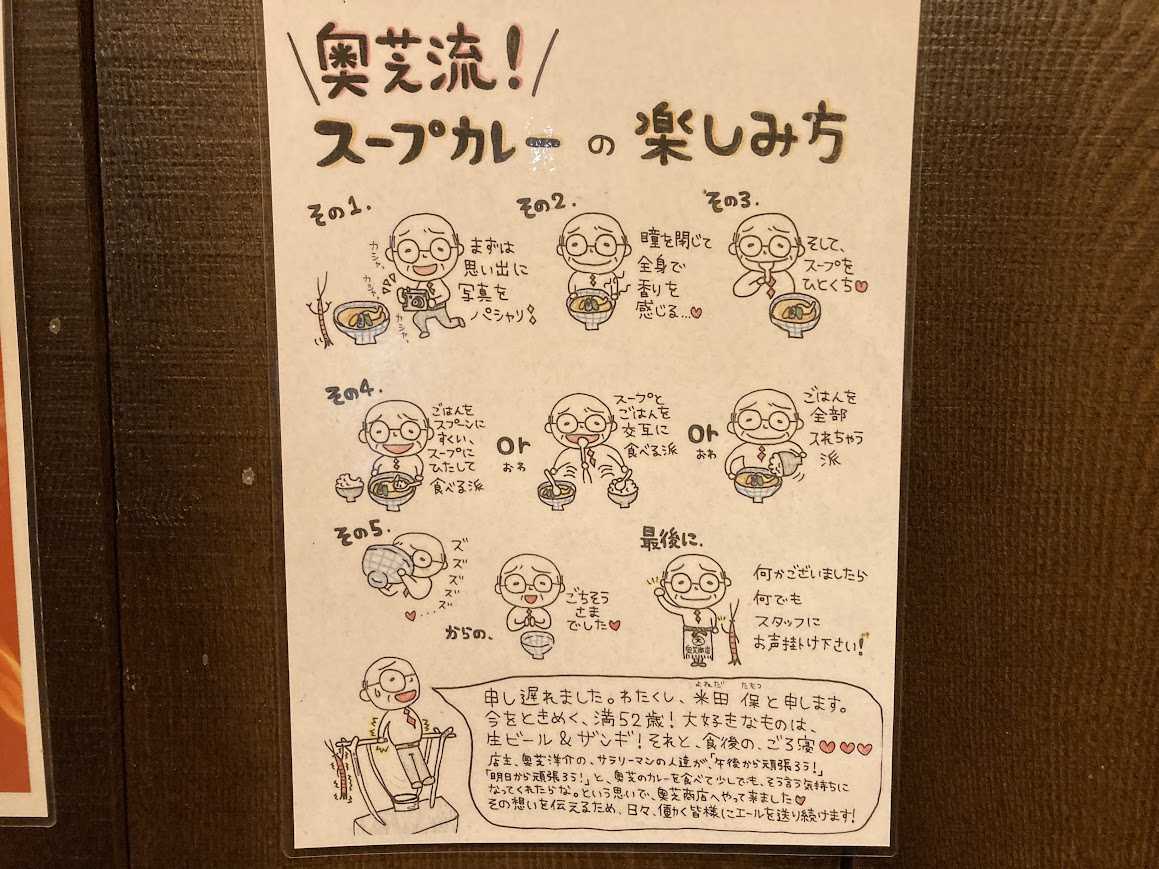 奥芝流!
スープカレーの楽しみ方
その1.
カシャ、
カシャ、
カシャ、
まずは
思い出に
写真を
パシャリ
その2.
瞳を閉じて
全身で
香りを
感じる…
その3.
そして、
スープを
ひとくち
その4.
ごはんを
スプーンに
すくい、
スープに
ひたして
食べる派
or
おわ
スープと
ごはんを
交互に
食べる派
or
おわ
ごはんを
全部
入れちゃう
派
その5.
ズズズズズ
…
からの、
ごちそう
さま
でした
最後に.
奥芝商店
何かございましたら
何でも
スタッフに
お声掛け下さい!
よねだ たもつ
申し遅れました。わたくし、米田 保と申します。
今をときめく、満52歳!大好きなものは、
生ビール&ザンギ!それと、食後の、ごろ寝
店主、奥芝洋介の、サラリーマンの人達が、「午後から頑張ろう!」
「明日から頑張ろう!」と、奥芝のカレーを食べて少しでも、そう言う気持ちに
なってくれたらな。という思いで、奥芝商店へやって来ました
その想いを伝えるため、日々、働く皆様にエールを送り続けます!